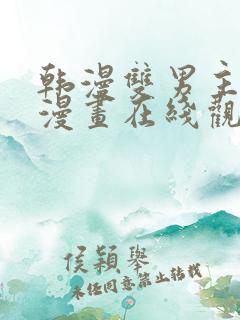 韩漫雙男主
漫畫在线觀
侯穎舉
未经同意禁止转载